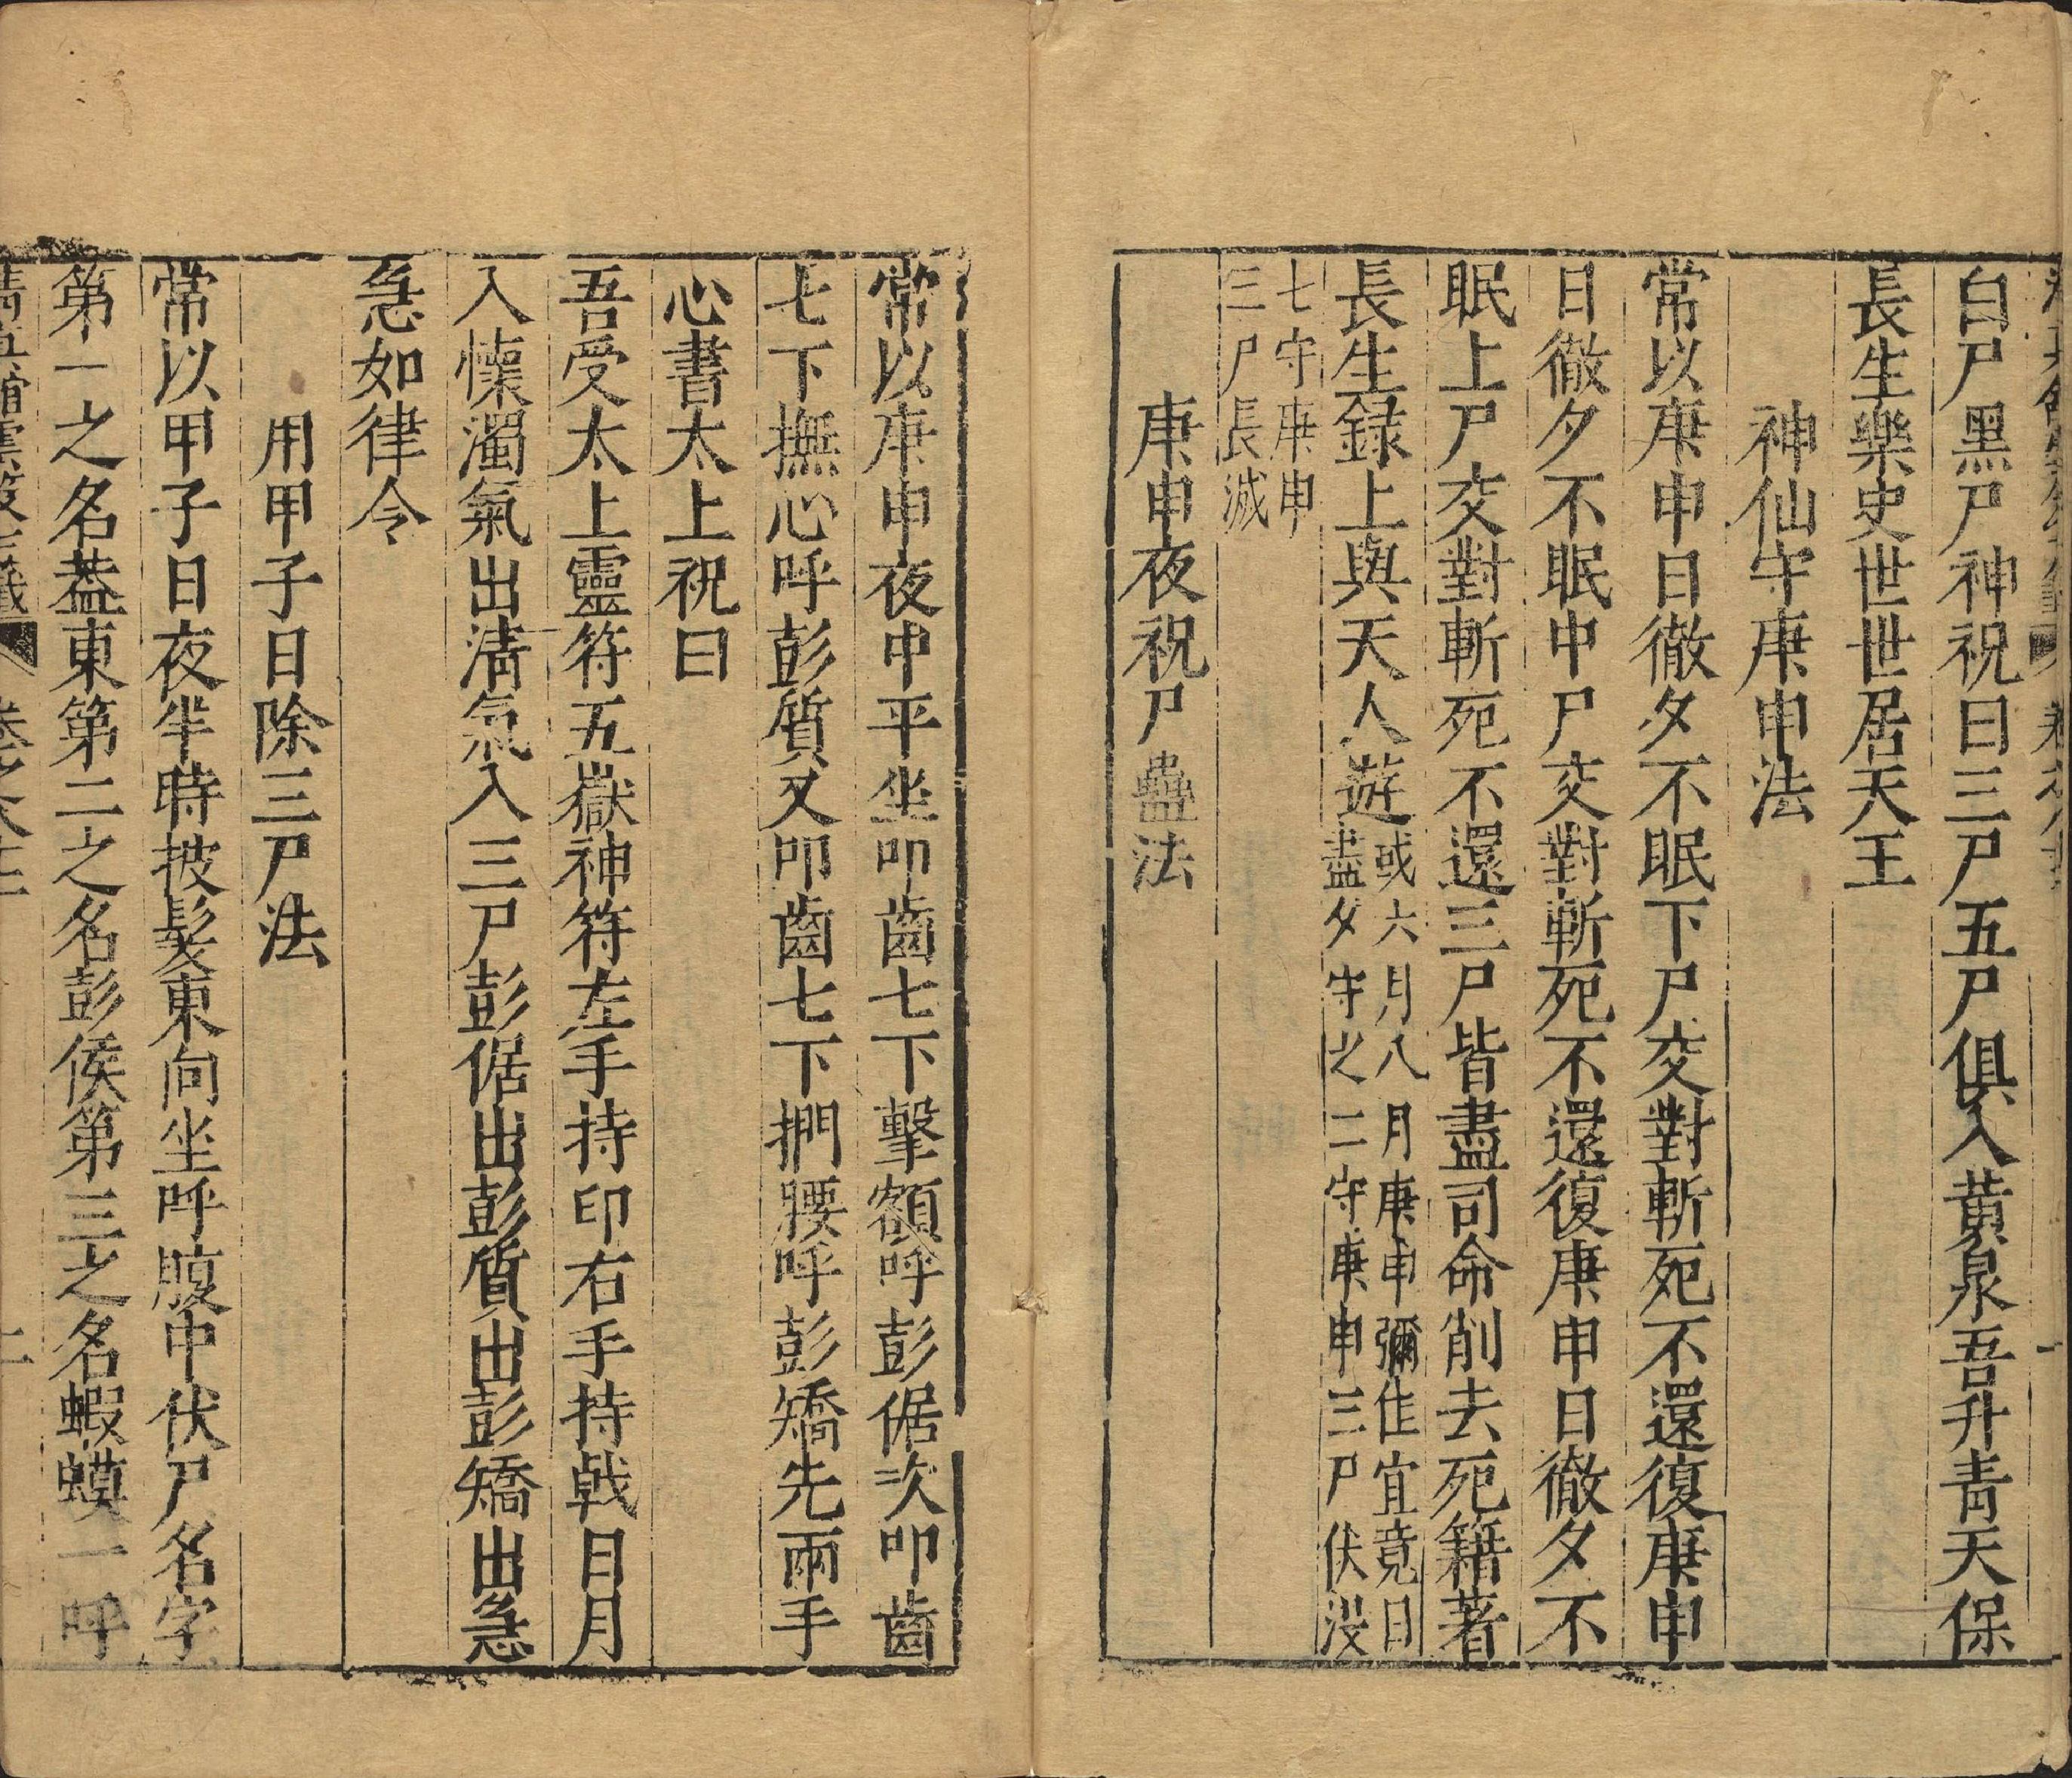 白尸黑尸神祝曰三尸五尸俱入黃泉吾升青天保
長生樂史世世居天王
神仙守庚申法
常以庚申日徹夕不眠下尸交對斬死不還復庚申
日徹夕不眠中尸交對斬死不還復庚申日徹夕不
眠上尸交對斬死不還三尸皆盡司命削去死籍著
長生録上與天人遊或六月八月庚申彌佳宜竟日
盡夕守之二守庚申三尸伏沒
七守庚申
三尸長滅
庚申夜祝尸蠱法
常以庚申夜中平坐叩齒七下擊額呼彭倨次叩齒
七下撫心呼彭質又叩齒七下捫腰呼彭矯先兩手
心書太上祝曰
吾受太上靈符五嶽神符左手持印右手持戟日月
入懷濁氣出淸氣入三尸彭倨出彭質出彭矯出急
急如律令
用甲子日除三尸法
常以甲子日夜半時披髮東向坐呼腹中伏尸名字
第一之名葢東第二之名彭侯第三之名蝦蟆一呼